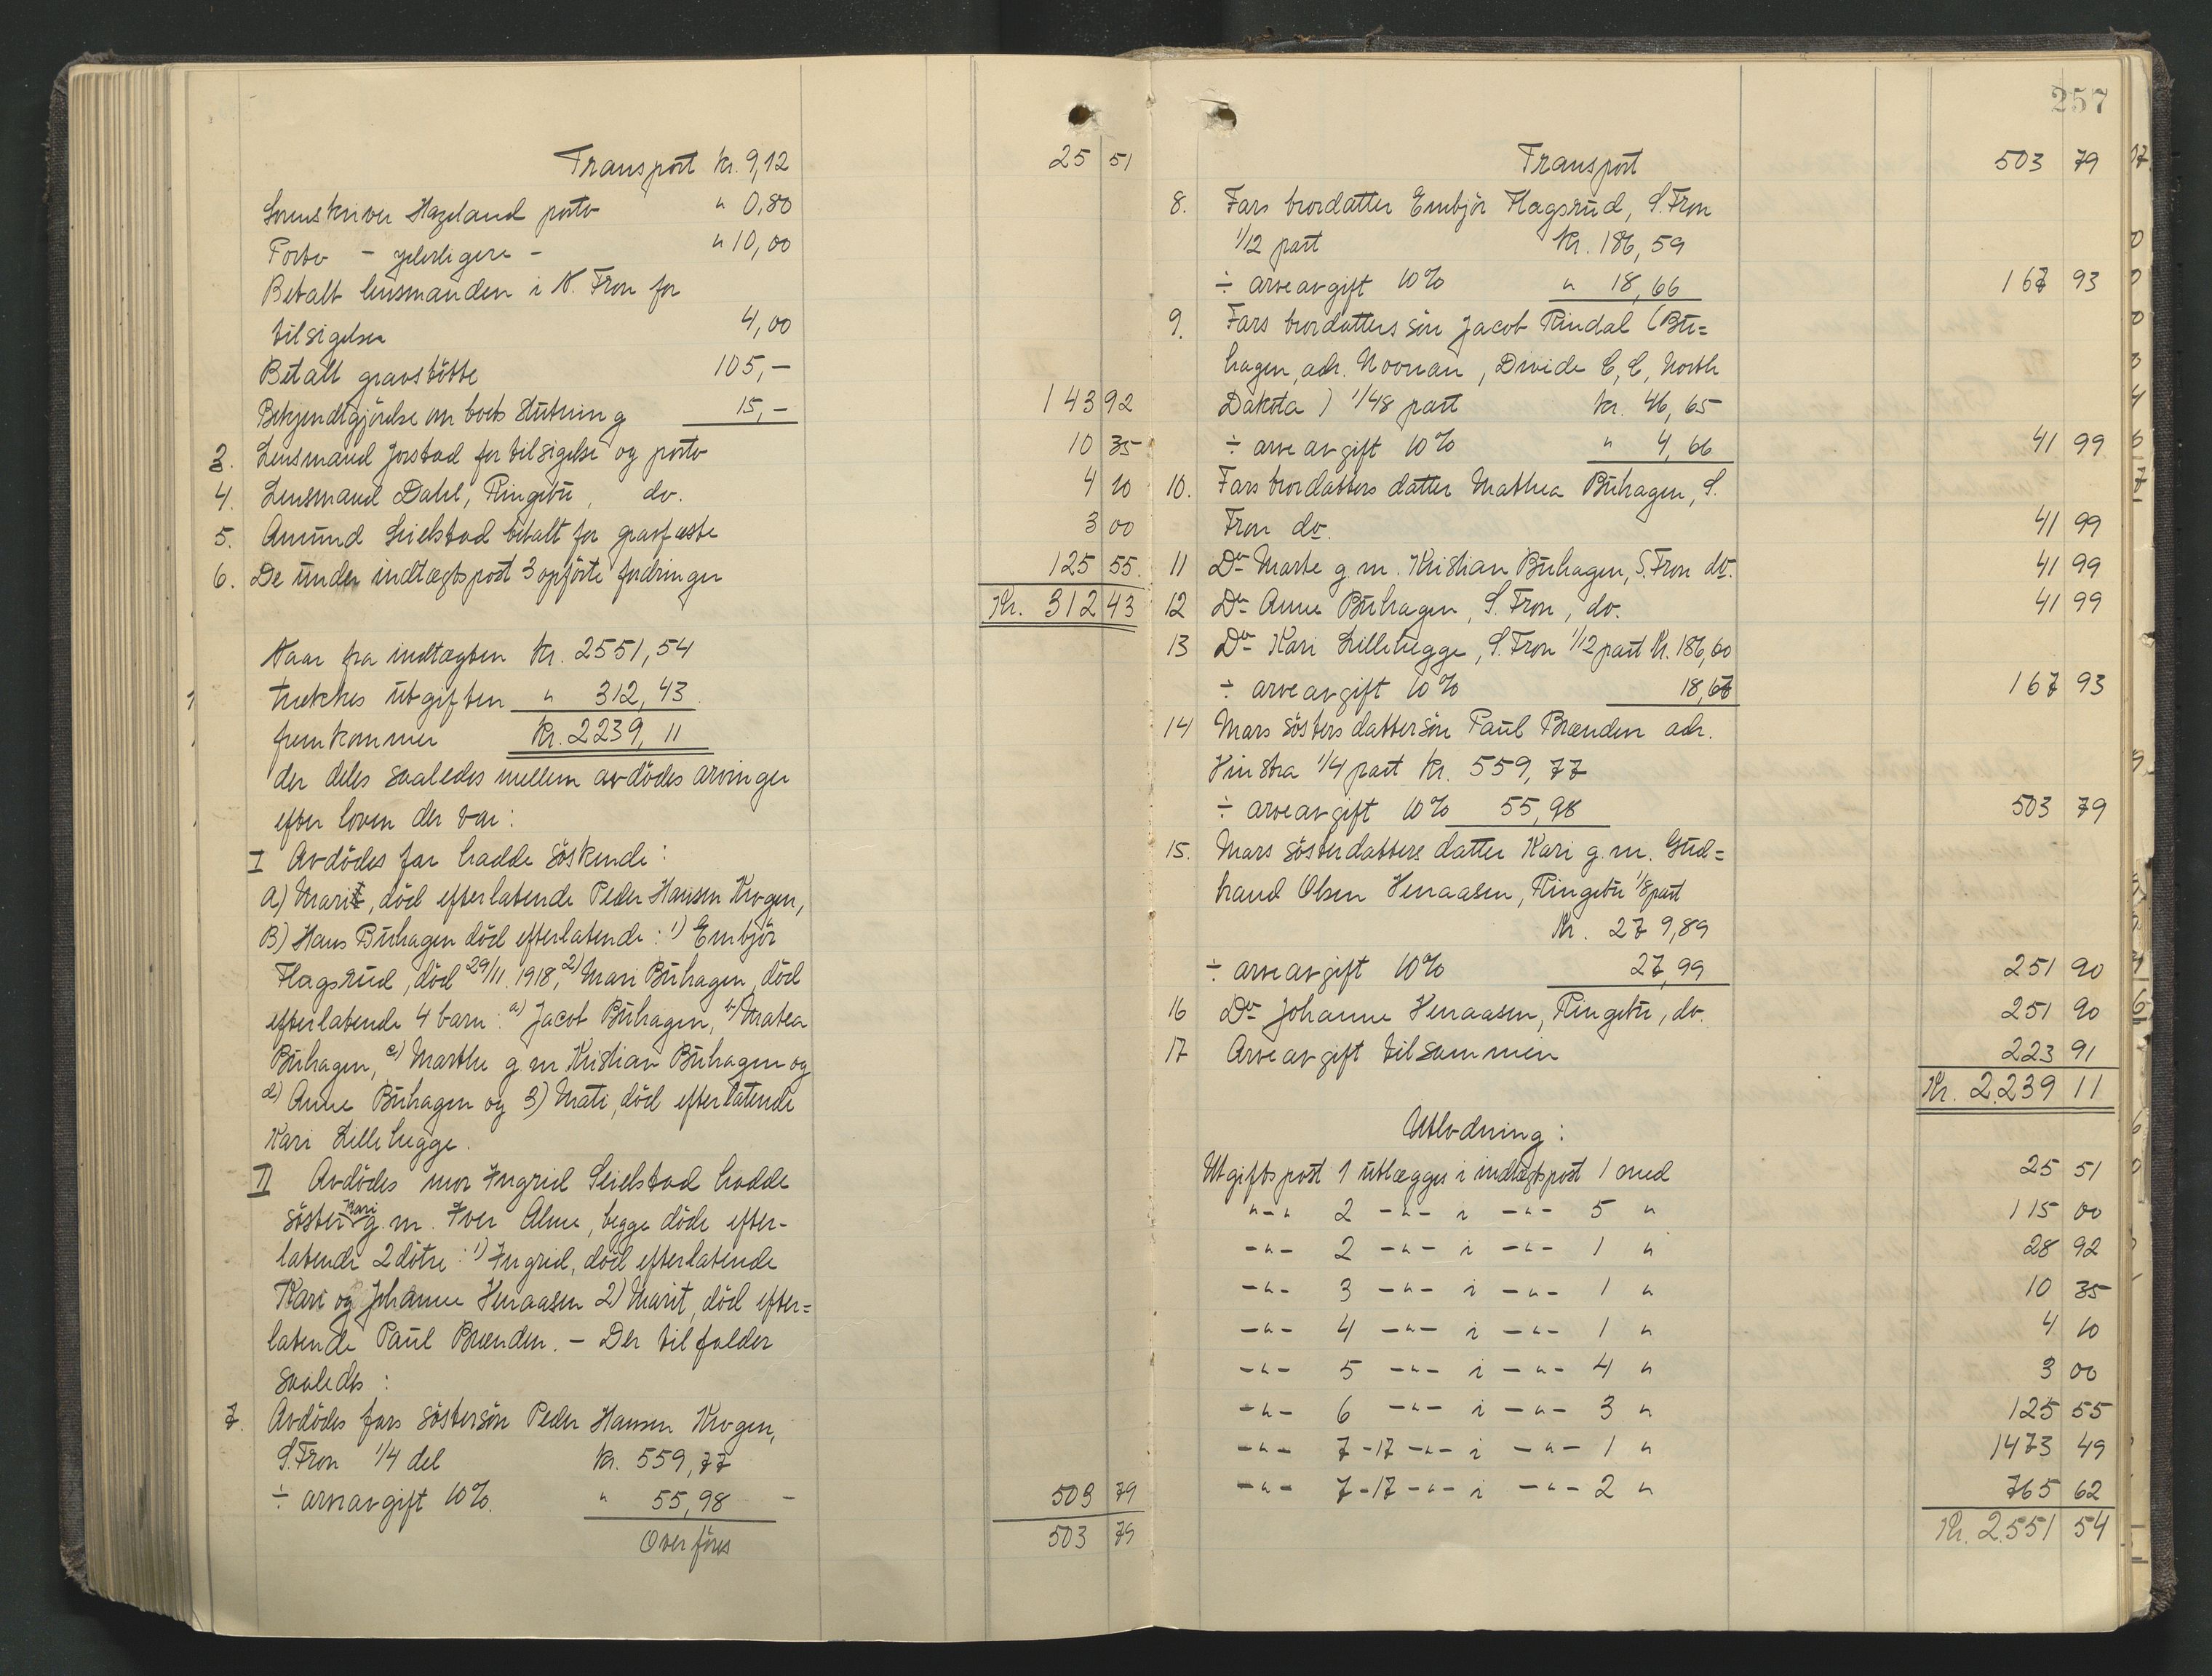 Transport kr. 9,12 25 51
Sorenskriver Hageland porto " 0,80
Porto - yderligere - " 10,00
Betalt lensmanden i N. Fron for
tilsigelser 4,00
Betalt gravstötte 105,-
Bekjendtgjörelse om boets slutning 15,- 143 92
3. Lensmand Jorstad for tilsigelse og porto 10 35
4. Lensmand Dahl, Ringebu, do. 4 10
5. Amund Seielstad betalt for gravfæste 3 00
6. De under indtægtspost 3 opförte fordringer 125 55
Kr. 312 43
Naar fra indtægten kr. 2551,54
trækkes utgiften " 312,43
fremkommer Kr. 2239,11
der deles saaledes mellem avdödes arvinger
efter loven der var:
I Avdödes far hadde söskende:
A) Marit, död efterlatende Peder Hansen Krogen,
B) Hans Buhagen död efterlatende: 1) Embjör
Flagsrud, död 29/11 1918, 2) Mari Buhagen, död
efterlatende 4 barn: a) Jacob Buhagen, b) Matea
Buhagen, c) Marthe g m Kristian Buhagen og
d) Anne Buhagen og 3) Mati, död efterlatende
Kari Lillehegge.
II Avdödes mor Ingrid Seielstad hadde
söster Kari g. m. Iver Alme, begge döde efter-
latende 2 dötre: 1) Ingrid, död efterlatende
Kari og Johanne Henaasen 2) Marit, död efter=
latende Paul Brænden. - Der tilfalder
saaledes:
7. Avdödes fars söstersön Peder Hansen Krogen,
S. Fron 1/4 del kr. 559,77
÷ arveavgift 10%. " 55,98 - 503 79
Overföres 503 79
257
Transport 503 79
8. Fars brordatter Embjör Flagsrud, S. Fron
1/12 part kr. 186,59
÷ arveavgift 10% " 18,66 167 93
9. Fars brordatters sön Jacob Rindal (Bu=
hagen, adr. Noonan, Divide C, C, North
Dakota) 1/48 part kr. 46,65
÷ arveavgift 10% " 4,66 41 99
10. Fars brordatters datter Mathea Buhagen, S.
Fron do. 41 99
11 Do Marte g. m. Kristian Buhagen, S. Fron do. 41 99
12 Do Anne Buhagen, S. Fron, do. 41 99
13 Do Kari Lillehegge, S. Fron 1/12 part Kr. 186,60
÷ arveavgift 10% 18,67 167 93
14 Mors sösters dattersön Paul Brænden adr.
Vinstra 1/4 part kr. 559,77
÷ arveavgift 10% 55,98 503 79
15. Mors sösterdatters datter Kari g. m. Gud=
brand Olsen Henaasen, Ringebu 1/8 part
Kr. 279,89
÷ arveavgift 10% 27,99 251 90
16 Do Johanne Henaasen, Ringebu, do. 251 90
17 Arveavgift tilsammen 223 91
Kr. 2.239 11
Utlodning:
Utgiftspost 1 utlægges i indtægtspost 1 med 25 51
-"- 2 -"- i -"- 5 " 115 00
-"- 2 -"- i -"- 1 " 28 92
-"- 3 -"- i -"- 1 " 10 35
-"- 4 -"- i -"- 1 " 4 10
-"- 5 -"- i -"- 4 " 3 00
-"- 6 -"- i -"- 3 " 125 55
-"- 7-17 -"- i -"- 1 " 1473 49
-"- 7-17 -"- i -"- 2 " 765 62
Kr. 2.551 54